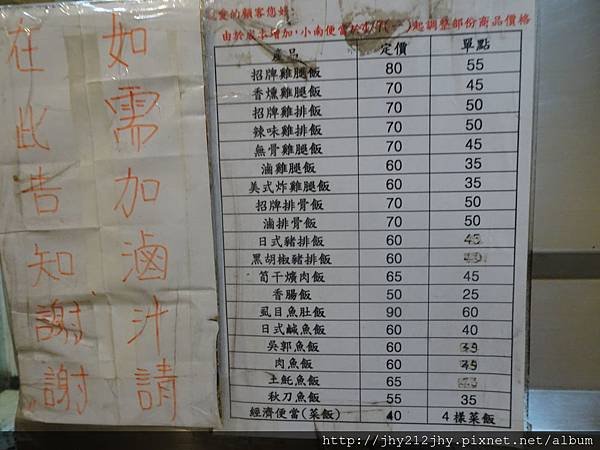 如需加滷汁請
在此告知謝謝
愛的顧客您好:
由於成本增加,小南便當於 起調整部份商品價格
產品 定價 單點
招牌雞腿飯 80 55
香燻雞腿飯 70 45
招牌雞排飯 70 50
辣味雞排飯 70 50
無骨雞腿飯 70 45
滷雞腿飯 60 35
美式炸雞腿飯 60 35
招牌排骨飯 70 50
滷排骨飯 70 50
日式豬排飯 60 45
黑胡椒豬排飯 60
筍干爌肉飯 65 45
香腸飯 50 25
虱目魚肚飯 90 60
日式鹹魚飯 60 40
吳郭魚飯 60
肉魚飯 60
土魠魚飯 65
秋刀魚飯 55 35
經濟便當(菜飯) 40 4樣菜飯
http://jhy212jhy.pixnet.net/album